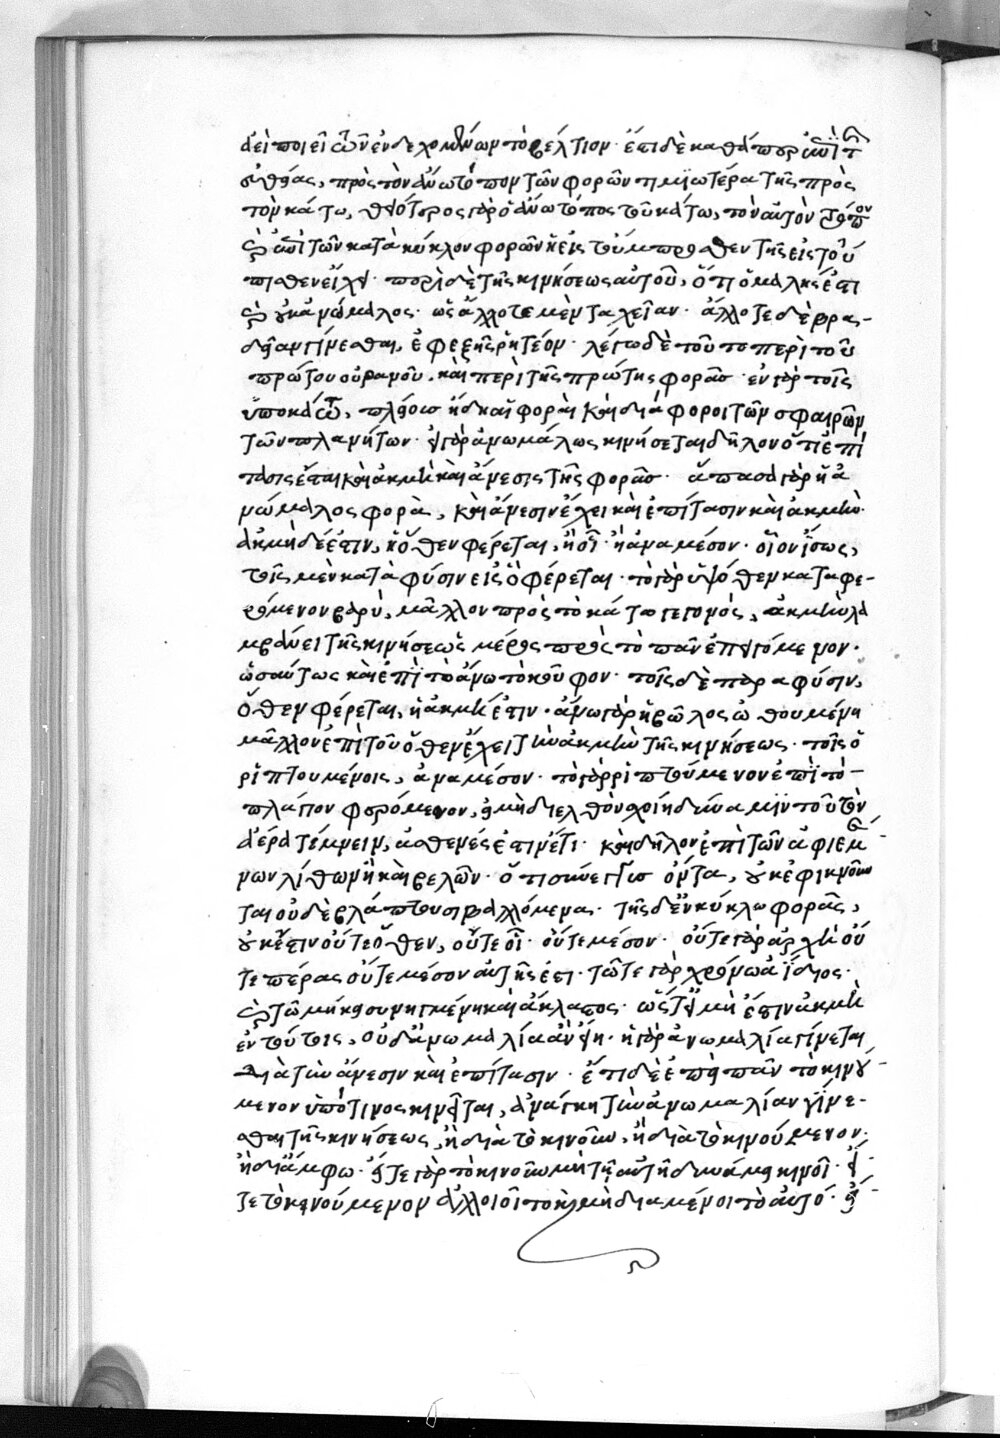 ἀεὶ ποιεῖ τῶν ἐνδεχομένων τὸ βέλτιον· ἔστι δὲ καθάπερ ἐπὶ τῆς
εὐθείας, πρὸς τὸν ἄνω τόπον τῶν φορῶν τιμϊωτέρα τῆς πρὸς
τὸν κάτω, θειότερος γὰρ ὁ ἄνω τόπος τοῦ κάτω, τὸν αὐτὸν τρόπον
καὶ ἐπὶ τῶν κατὰ κύκλον φορῶν ἡ εἰς τοὔμπροσθεν τῆς εἰς τοὔ
πισθεν ἔχει· περὶ δὲ τῆς κινήσεως αὐτοῦ, ὅτι ὁμαλής ἐστι
καὶ οὐκ ἀνώμαλος· ὡς ἄλλοτε μὲν ταχεῖαν· ἄλλοτε δὲ βρα-
δεῖαν γίνεσθαι, ἐφεξῆς ῥητέον· λέγω δὲ τοῦτο περὶ τοῦ
πρώτου οὐρανοῦ, καὶ περὶ τῆς πρώτης φορᾶς· ἐν γὰρ τοῖς
ὑποκάτω, πλείους ἤδη καὶ φοραὶ καὶ διάφοροι τῶν σφαιρῶν
τῶν πλανήτων· εἰ γὰρ ἀνωμάλως κινήσεται δῆλον ὅτι ἐπί
τασις ἔσται καὶ ἀκμὴ καὶ ἄνεσις τῆς φορᾶς· ἅπασα γὰρ ἡ ἀ
νώμαλος φορὰ, καὶ ἄνεσιν ἔχει καὶ ἐπίτασιν καὶ ἀκμήν·
ἀκμὴ δέ ἐστιν, ἢ ὅθεν φέρεται, ἢ οἷ· ἢ ἀναμέσον· οἷον ἴσως,
τοῖς μὲν κατὰ φύσιν εἰς ὃ φέρεται· τὸ γὰρ ὑψόθεν καταφε-
ρόμενον βαρὺ, μᾶλλον πρὸς τὸ κάτω γεγονὸς, ἀκμὴν λα
μβάνει τῆς κινήσεως μέρος πρὸς τὸ πᾶν ἐπειγόμενον·
ὡσαύτως καὶ ἐπῒ τὸ ἄνω τὸ κοῦφον· τοῖς δὲ παρα φύσιν,
ὅθεν φέρεται, ἡ ἀκμή ἐστιν· ἄνω γὰρ ἡ βῶλος ὠθουμένη
μᾶλλον ἐπὶ τοῦ ὅθεν ἔχει τὴν ἀκμὴν τῆς κινήσεως· τοῖς δ
ριπτουμένοις, ἀναμέσον· τὸ γὰρ ῥιπτούμενον ἐπῒ τὸ
πλάγιον φερόμενον, εἰ μὴ διελθὸν χρείη δύναμϊν τοῦ τὸν
ἀέρα τέμνειν, ἀσθενές ἐστιν ἔτι· καὶ δῆλον ἐπὶ τῶν ἀφιεμέ-
νων λίθων ἢ καὶ βελῶν· ὅτι σύνεγγυς ὄντα, οὐκ ἐφικνοῦν
ται οὐδὲ βλάπτουσι βαλλόμενα· τῆς δ' ἐν κύκλω φορᾶς,
οὐκ ἔστιν οὔτε ὅθεν, οὔτε οἷ· οὔτε μέσον· οὔτε γὰρ ἀρχὴ οὔ
τε πέρας οὔτε μέσον αὐτῆς ἐστι· τῶ τε γὰρ χρόνω ἀΐδιος·
καὶ τῶ μήκει συνηγμένη καὶ ἄκλαστος· ὥστ' εἰ μὴ ἔστιν ἀκμὴ
ἐν τούτοις, οὐδ' ἀνωμαλία ἂν εἴη· ἡ γὰρ ἀνωμαλία γίνεται
διὰ τὴν ἄνεσιν καὶ ἐπίτασιν· ἔτι δὲ ἐπεὶ πᾶν τὸ κινού-
μενον ὑπό τινος κινεῖται, ἀνάγκη τὴν ἀνωμαλίαν γίνε-
σθαι τῆς κινήσεως, ἢ διὰ τὸ κινοῦν, ἢ διὰ τὸ κινούμενον·
ἢ δι' ἄμφω· εἴτε γὰρ τὸ κινοῦν μὴ τῇ αὐτῇ δυνάμει κινοῖ· εἴ-
τε τὸ κινούμενον ἀλλοιοῖτο καὶ μὴ διαμένοι τὸ αὐτό· εἴ-